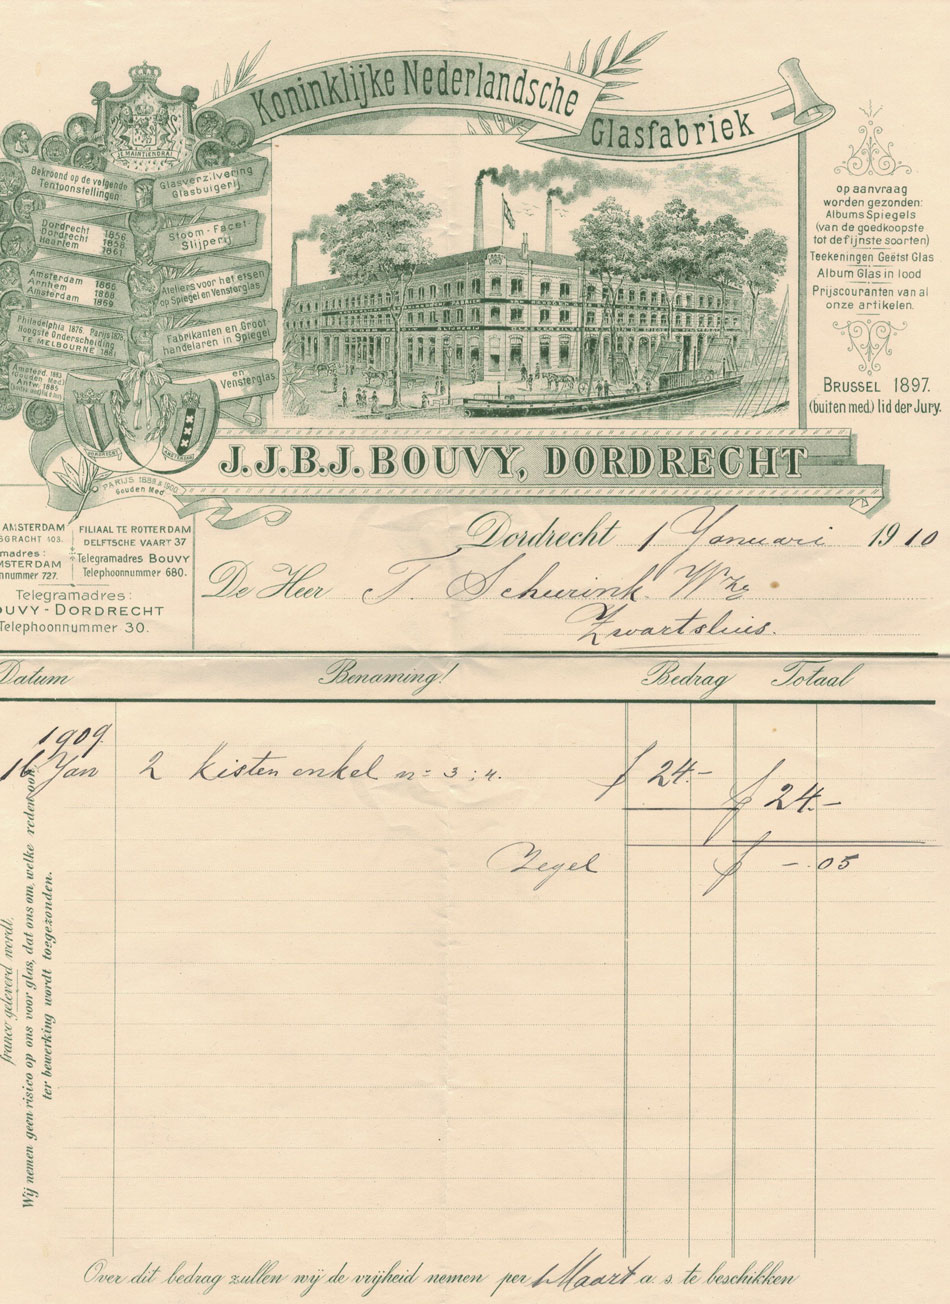 Koninklijke Nederlandsche
Glasfabriek
JE MAINTIENDRAI
Bekroond op de volgende
Tentoonstellingen
Glasverzilvering
Glasbuigerij
Dordrecht 1856
Dordrecht 1858
Haarlem 1861
Stoom-Facet-
Slijperij
Amsterdam 1866
Arnhem 1868
Amsterdam 1869
Ateliers voor het etsen
op Spiegel en Vensterglas
Philadelphia 1876, Parijs 1878
Hoogste Onderscheiding
TE MELBOURNE 188
Fabrikanten en Groot
handelaren in Spiegel
Amsterd. 1883
Gouden Med.
Antw. 1885
en
Vensterglas
DORDRECHT
AMSTERDAM
PARIJS 1889 & 1900
Gouden Med
op aanvraag
worden gezonden:
Albums Spiegels
(van de goedkoopste
tot de fijnste soorten)
Teekeningen Geëtst Glas
Album Glas in lood
Prijscouranten van al
onze artikelen.
BRUSSEL 1897.
(buiten med.) lid der Jury.
J.J.B.J. BOUVY, DORDRECHT
AMSTERDAM
SGRACHT 403.
madres:
MSTERDAM
nnummer 727.
FILIAAL TE ROTTERDAM
DELFTSCHE VAART 37
Telegramadres BOUVY
Telephoonnummer 680.
Telegramadres:
OUVY-DORDRECHT
Telephoonnummer 30.
Dordrecht 1 Januari 1910
De Heer T. Scheurink Wzg
Zwartsluis.
Datum Benaming! Bedrag Totaal
1909
16 Jan 2 kisten enkel n= 3 : 4. f 24.-
f 24.-
Zegel f -.05
franco geleverd wordt.
Wij nemen geen risico op ons voor glas, dat ons om welke reden ook,
ter bewerking wordt toegezonden.
Over dit bedrag zullen wij de vrijheid nemen per 1 Maart a. s. te beschikken